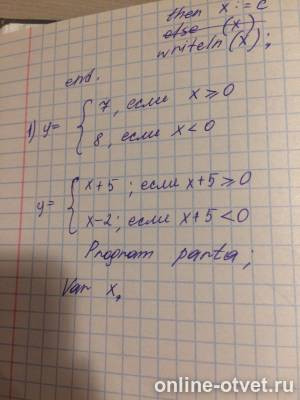 then x := c
else (x)
writeln (x);
end.
1) y= { 7, если x ⩾ 0
8, если x < 0
y= { x+5 ; если x+5 ⩾ 0
x-2; если x+5 < 0
Program parta;
Var x,
online-otvet.ru